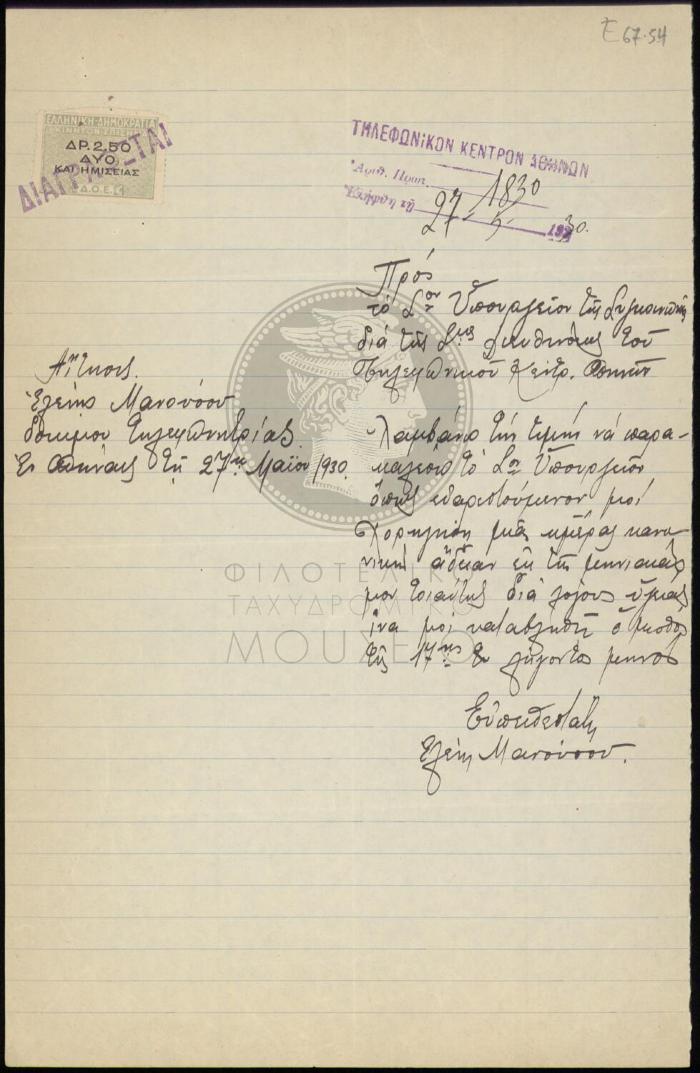 Ε 67.54
ΕΛΛΗΝΙΚΗ ΔΗΜΟΚΡΑΤΙΑ
ΔΡ. 2.50
ΔΥΟ
ΚΑΙ ΗΜΙΣΕΙΑΣ
Δ.Ο.Ε.
ΤΗΛΕΦΩΝΙΚΟΝ ΚΕΝΤΡΟΝ ΑΘΗΝΩΝ
Ἀριθ. Πρωτ. 1830
Ἐλήφθη τῇ 27-5-1930.
Πρὸς
τὸ Σον Ὑπουργεῖον τῆς Συγκοινωνίας
διὰ τῆς Σης Διευθύνσεως τοῦ
Τηλεφωνικοῦ Κέντρ. Ἀθηνῶν
Αἴτησις
Ἑλένης Μανούσου
δοκίμου τηλεφωνητρίας.
Ἐν Ἀθήναις τῇ 27ῃ Μαΐου 1930
Λαμβάνω τὴν τιμὴν νὰ παρα-
καλέσω τὸ Σον Ὑπουργεῖον
ὅπως εὐαρεστούμενον μοὶ
χορηγήσῃ μιᾶς ἡμέρας κανο-
νικὴν ἄδειαν ἐκ τῆς μηνιαίας
μου τοιαύτης διὰ λόγους ὑγείας
ἵνα μοὶ καταβληθῇ ὁ μισθὸς
τῆς 17ης τοῦ λήγοντος μηνὸς
Εὐπειθεστάτη
Ἑλένη Μανούσου.
ΦΙΛΟΤΕΛΙΚΟ
ΤΑΧΥΔΡΟΜΙΚΟ
ΜΟΥΣΕΙΟ